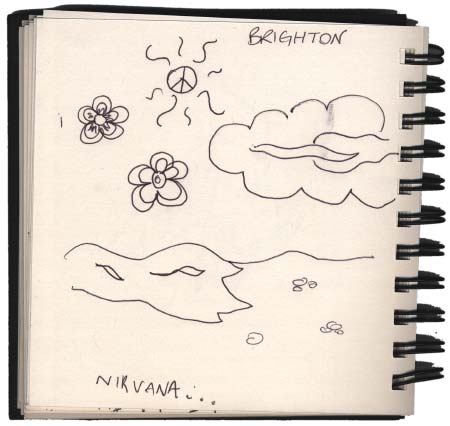 BRIGHTON
NIRVANA...